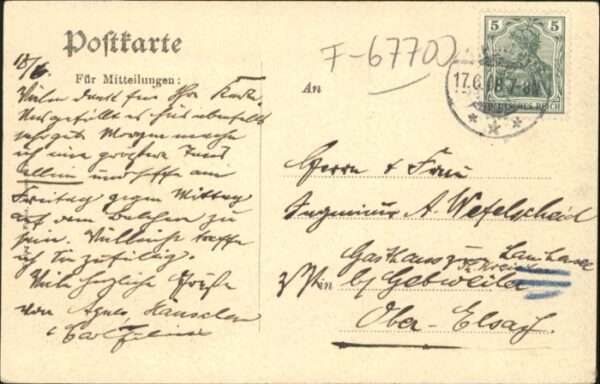 Postkarte
Für Mitteilungen:
An
F-6770
5
17.6.08 7-8N
DEUTSCHES REICH
18/6.
Vielen Dank für Ihre Karte.
gefällt es hier ebenfalls
sehr gut. Morgen mache
ich eine grössere Tour
allein und hoffe am
Freitag gegen Mittag
auf dem Belchen zu
sein. Vielleicht treffe
ich Sie zufällig.
Viele herzliche Grüße
von Agnes,
Herrn & Frau
Ingenieur A. Wefelscheid
Gasthaus zum
in
by Gebweiler
Ober-Elsaß.